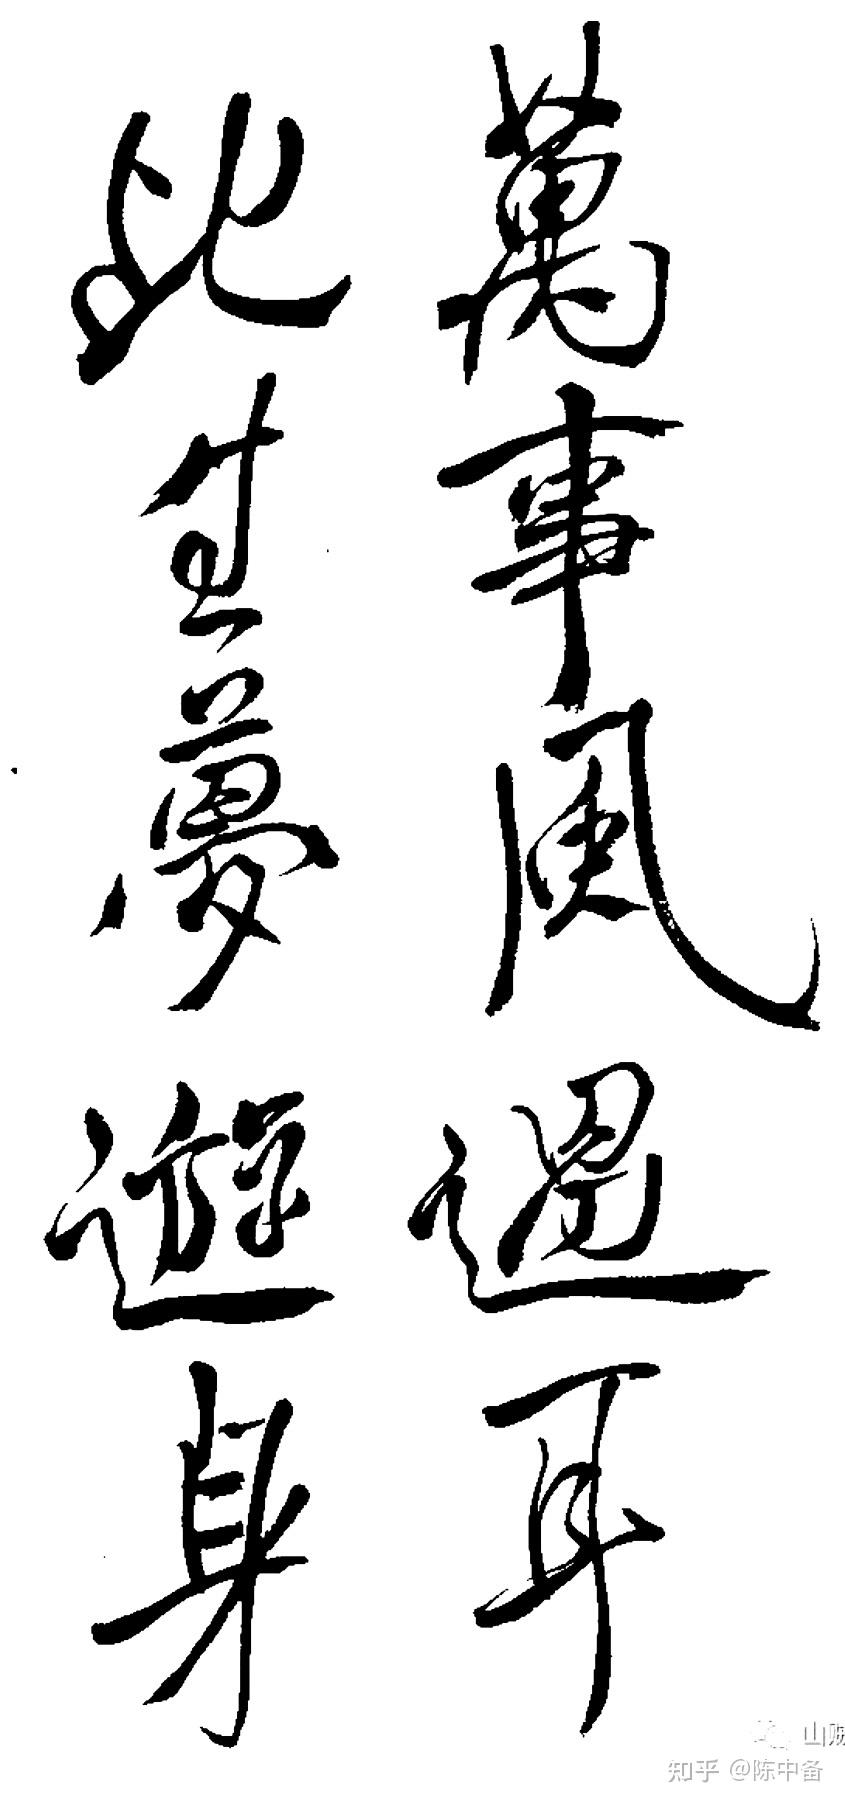 萬事風過耳
此生夢遊身
山贼
知乎 @陈中备